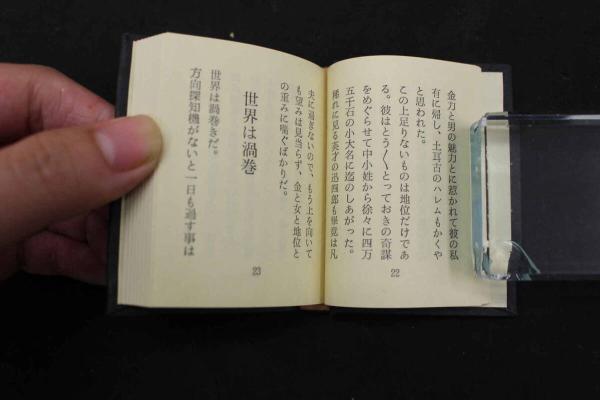 金力と男の魅力とに惹かれて彼の私
有に帰し、土耳古のハレムもかくや
と思われた。
この上足りないものは地位だけであ
る。彼はとう〳〵とっておきの奇謀
をめぐらせて中小姓から徐々に四万
五千石の小大名に迄のしあがった。
稀れに見る英才の迅四郎も畢竟は凡
22
夫に過ぎないので、もう上を向いて
も望みは見当らず、金と女と地位と
の重みに喘ぐばかりだ。
世界は渦巻
世界は渦巻きだ。
方向探知機がないと一日も過す事は
23